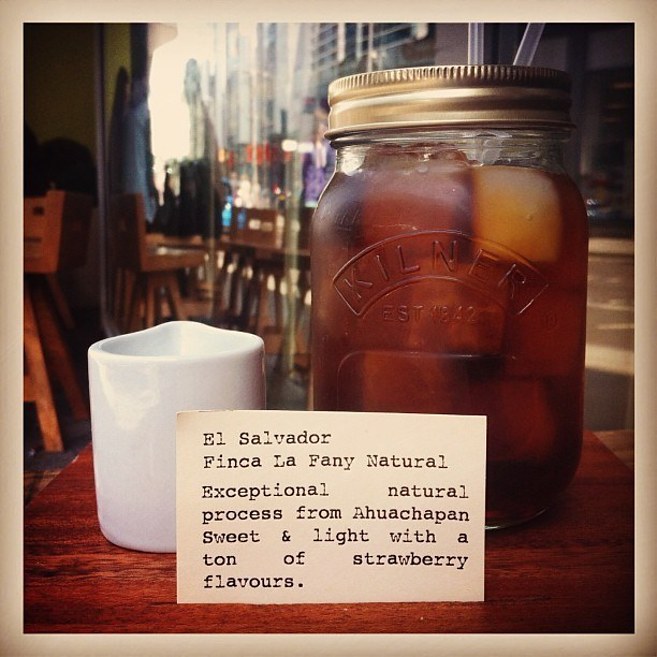 KILNER
EST 1842
El Salvador
Finca La Fany Natural
Exceptional natural
process from Ahuachapan
Sweet & light with a
ton of strawberry
flavours.